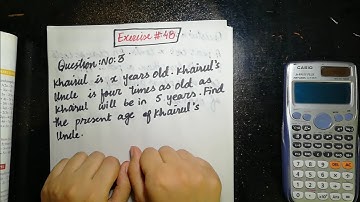 Exercise #4B:
Question:No:3
Khairul is x years old. Khairul's
Uncle is four times as old as
Khairul will be in 5 years. Find
the present age of Khairul's
Uncle.
CASIO